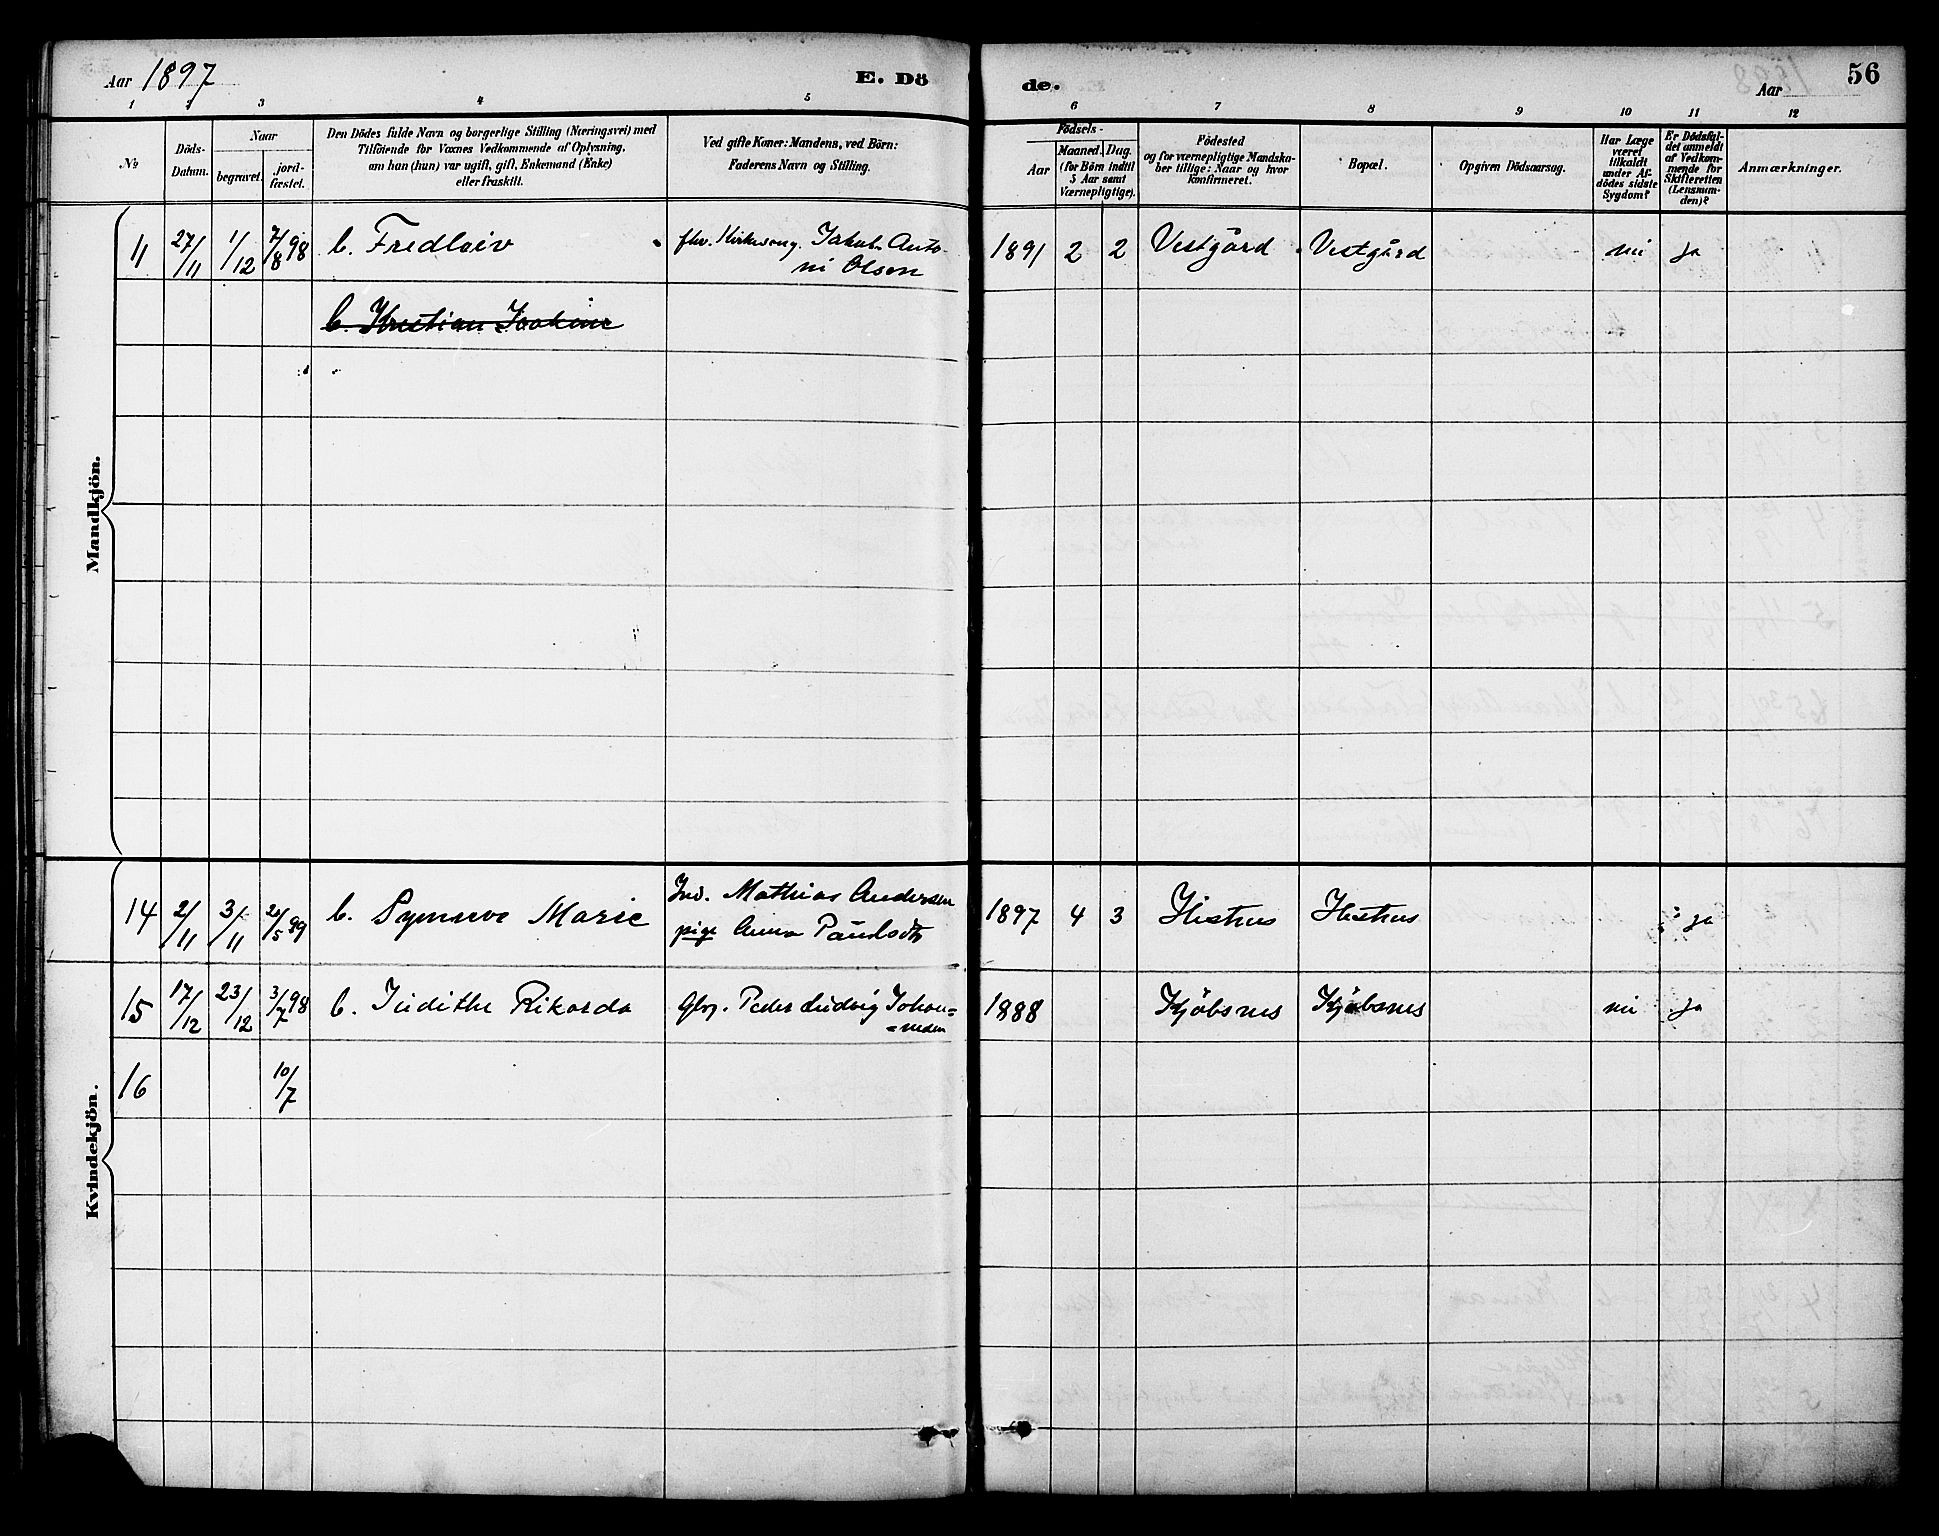 Aar 1897
E. Dö
de.
Aar
56
1 2 3 4 5 6 7 8 9 10 11 12
No
Döds-
Datum.
Naar
begravet.
jord-
fæstet.
Den Dödes fulde Navn og borgerlige Stilling (Næringsvei) med
Tilföiende for Voxnes Vedkommende af Oplysning,
om han (hun) var ugift, gift, Enkemand (Enke)
eller fraskilt.
Ved gifte Koner: Mandens, ved Börn:
Faderens Navn og Stilling.
Födsels-
Aar
Maaned. Dag.
(for Börn indtil
5 Aar samt
Værnepligtige).
Födested
og for værnepligtige Mandska-
ber tillige: Naar og hvor
konfirmeret.
Bopæl.
Opgiven Dödsaarsag.
Har Læge
været
tilkaldt
under Af-
dödes sidste
Sygdom?
Er Dödsfal-
det anmeldt
af Vedkom-
mende for
Skifteretten
(Lensman-
den)?
Anmærkninger.
Mandkjön.
11 27/11 1/12 7/8 98 b. Fredleiv fhv. Kirkesang. Jakob Anto-
ni Olsen
1891 2 2 Vestgård Vestgård nei ja
b. Kristian Joakim
Kvindekjön.
14 2/11 3/11 26/5 99 b. Synneve Marie
Ind. Mathias Andersen
pige Anna Paulsdtr
1897 4 3 Hestnes Hestnes ja
15 17/12 23/12 3/7 98 b. Judithe Rikarda Gbr. Peder Ludvig Johan=
=nesen
1888 Kjöbsnes Kjöbsnes nei ja
16 10/7